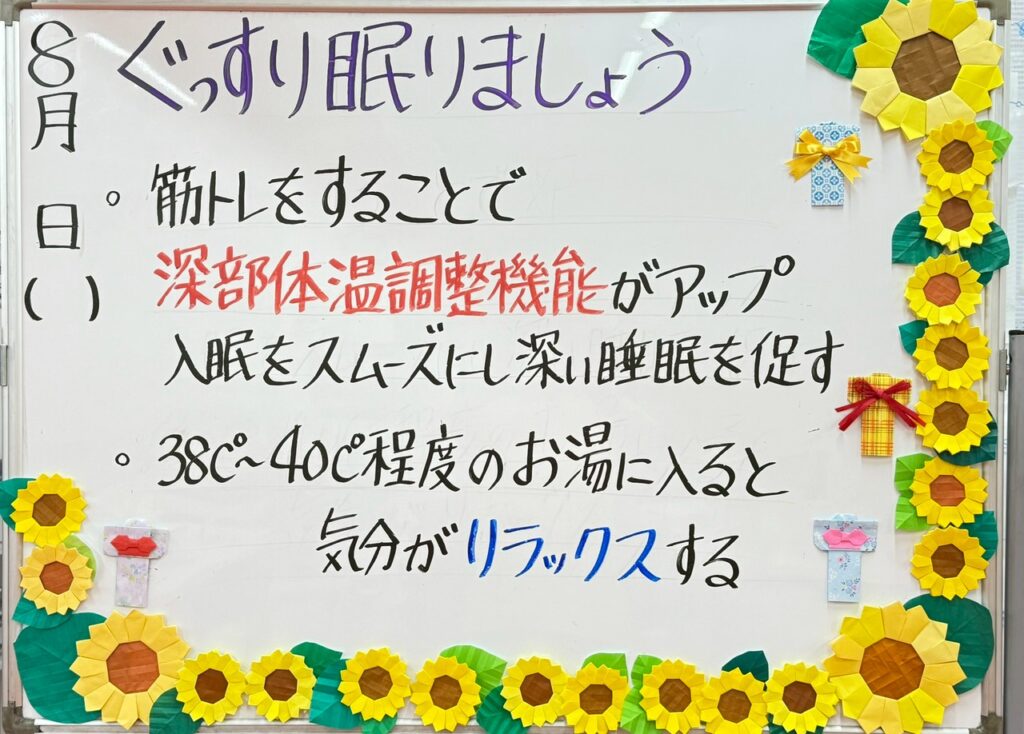 8月
日
( )
ぐっすり眠りましょう
。筋トレをすることで
深部体温調整機能がアップ
入眠をスムーズにし深い睡眠を促す
。38℃~40℃程度のお湯に入ると
気分がリラックスする